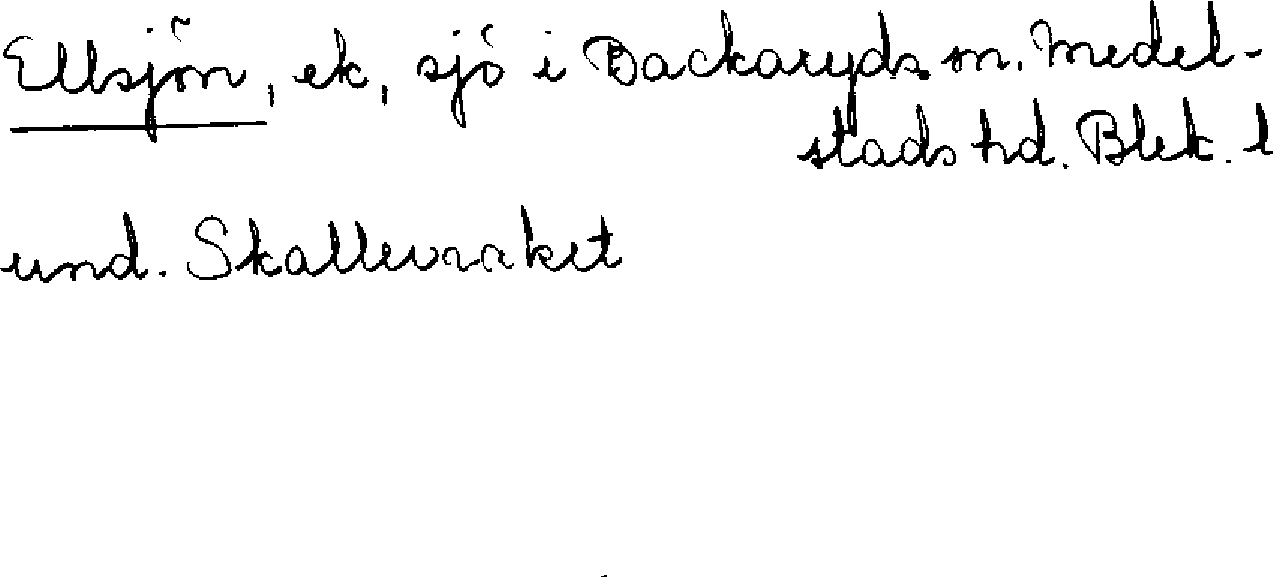 Ellsjön, ek, sjö i Backaryds sn. Medel-
stads hd. Blek. l
und. Skallevraket